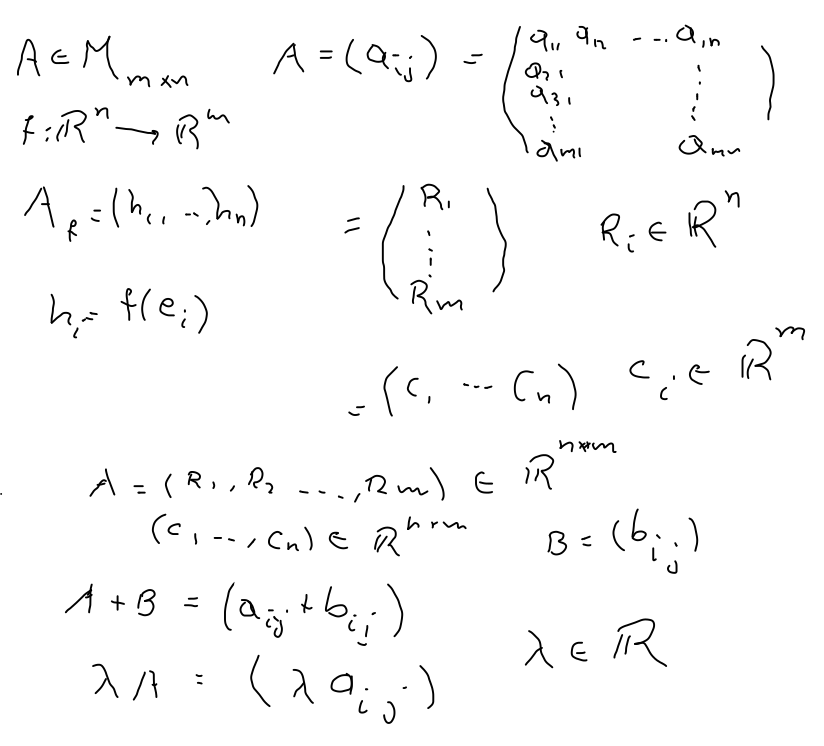 A ∈ M_{m×n}   A = (a_{ij}) = ( a_{11} a_{12} ---- a_{1n}
a_{21} ⋮
a_{31} ⋮
⋮
a_{m1} a_{mn} )
f : ℝ^n → ℝ^m
A_f = (h_1, .., h_n)   = ( R_1 ⋮ R_m )   R_i ∈ ℝ^n
h_i = f(e_i)
= (C_1 ... C_n)   C_i ∈ ℝ^m
A = (R_1, R_2 ---, R_m) ∈ ℝ^{n*m}
(C_1, --, C_n) ∈ ℝ^{n+m}   B = (b_{ij})
A + B = (a_{ij} + b_{ij})
λA = (λ a_{ij})   λ ∈ ℝ